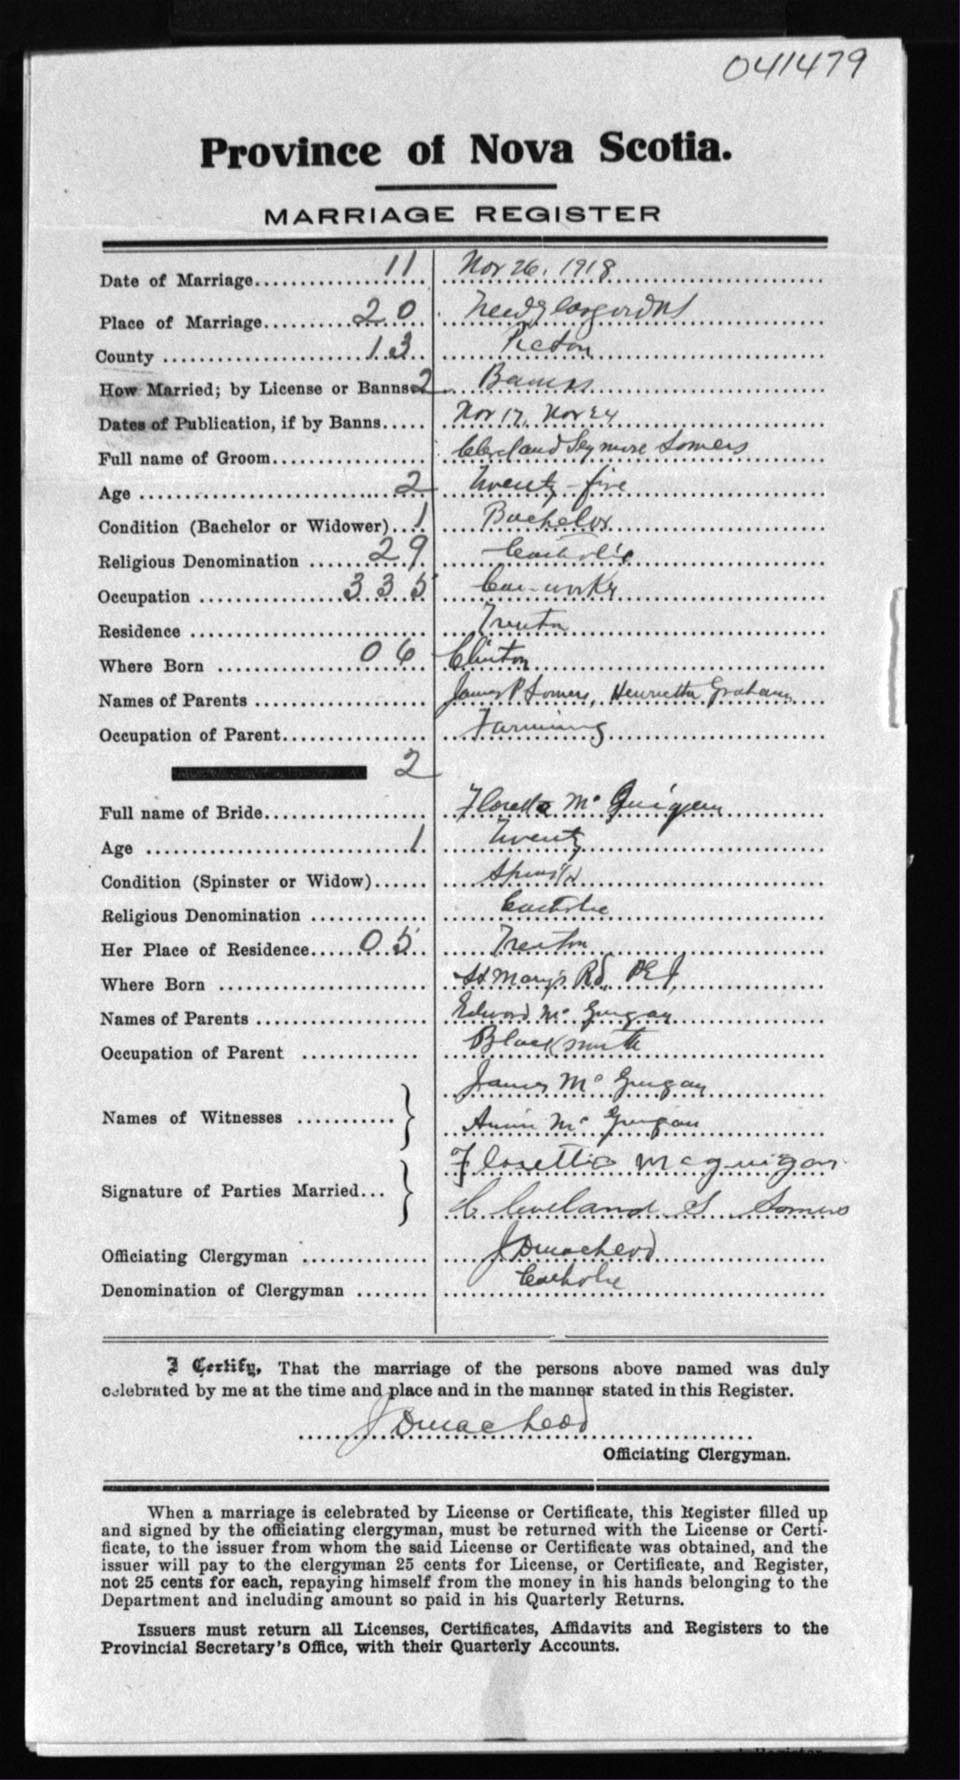 041479
Province of Nova Scotia.
MARRIAGE REGISTER
Date of Marriage 11 Nov 26. 1918
Place of Marriage 20 New Glasgow NS
County 13 Pictou
How Married; by License or Banns 2 Banns
Dates of Publication, if by Banns Nov 17. Nov 24
Full name of Groom Cleveland Seymore Somers
Age 2 Twenty-five
Condition (Bachelor or Widower) 1 Bachelor
Religious Denomination 29 Catholic
Occupation 335 Car-works
Residence Trenton
Where Born 06 Clinton
Names of Parents James P Somers, Henrietta Graham
Occupation of Parent Farming
2
Full name of Bride Floretta Mc Guigan
Age 1 Twenty
Condition (Spinster or Widow) Spinster
Religious Denomination Catholic
Her Place of Residence 05 Trenton
Where Born St Mary's Rd. P.E.I,
Names of Parents Edward Mc Guigan
Occupation of Parent Blacksmith
James Mc Guigan
Names of Witnesses
Annie Mc Guigan
Florettia Mcguigan
Signature of Parties Married...
Cleveland S Somers
Officiating Clergyman J D MacLeod
Denomination of Clergyman Catholic
I Certify, That the marriage of the persons above named was duly
celebrated by me at the time and place and in the manner stated in this Register.
J D MacLeod
Officiating Clergyman.
When a marriage is celebrated by License or Certificate, this Register filled up
and signed by the officiating clergyman, must be returned with the License or Certi-
ficate, to the issuer from whom the said License or Certificate was obtained, and the
issuer will pay to the clergyman 25 cents for License, or Certificate, and Register,
not 25 cents for each, repaying himself from the money in his hands belonging to the
Department and including amount so paid in his Quarterly Returns.
Issuers must return all Licenses, Certificates, Affidavits and Registers to the
Provincial Secretary's Office, with their Quarterly Accounts.